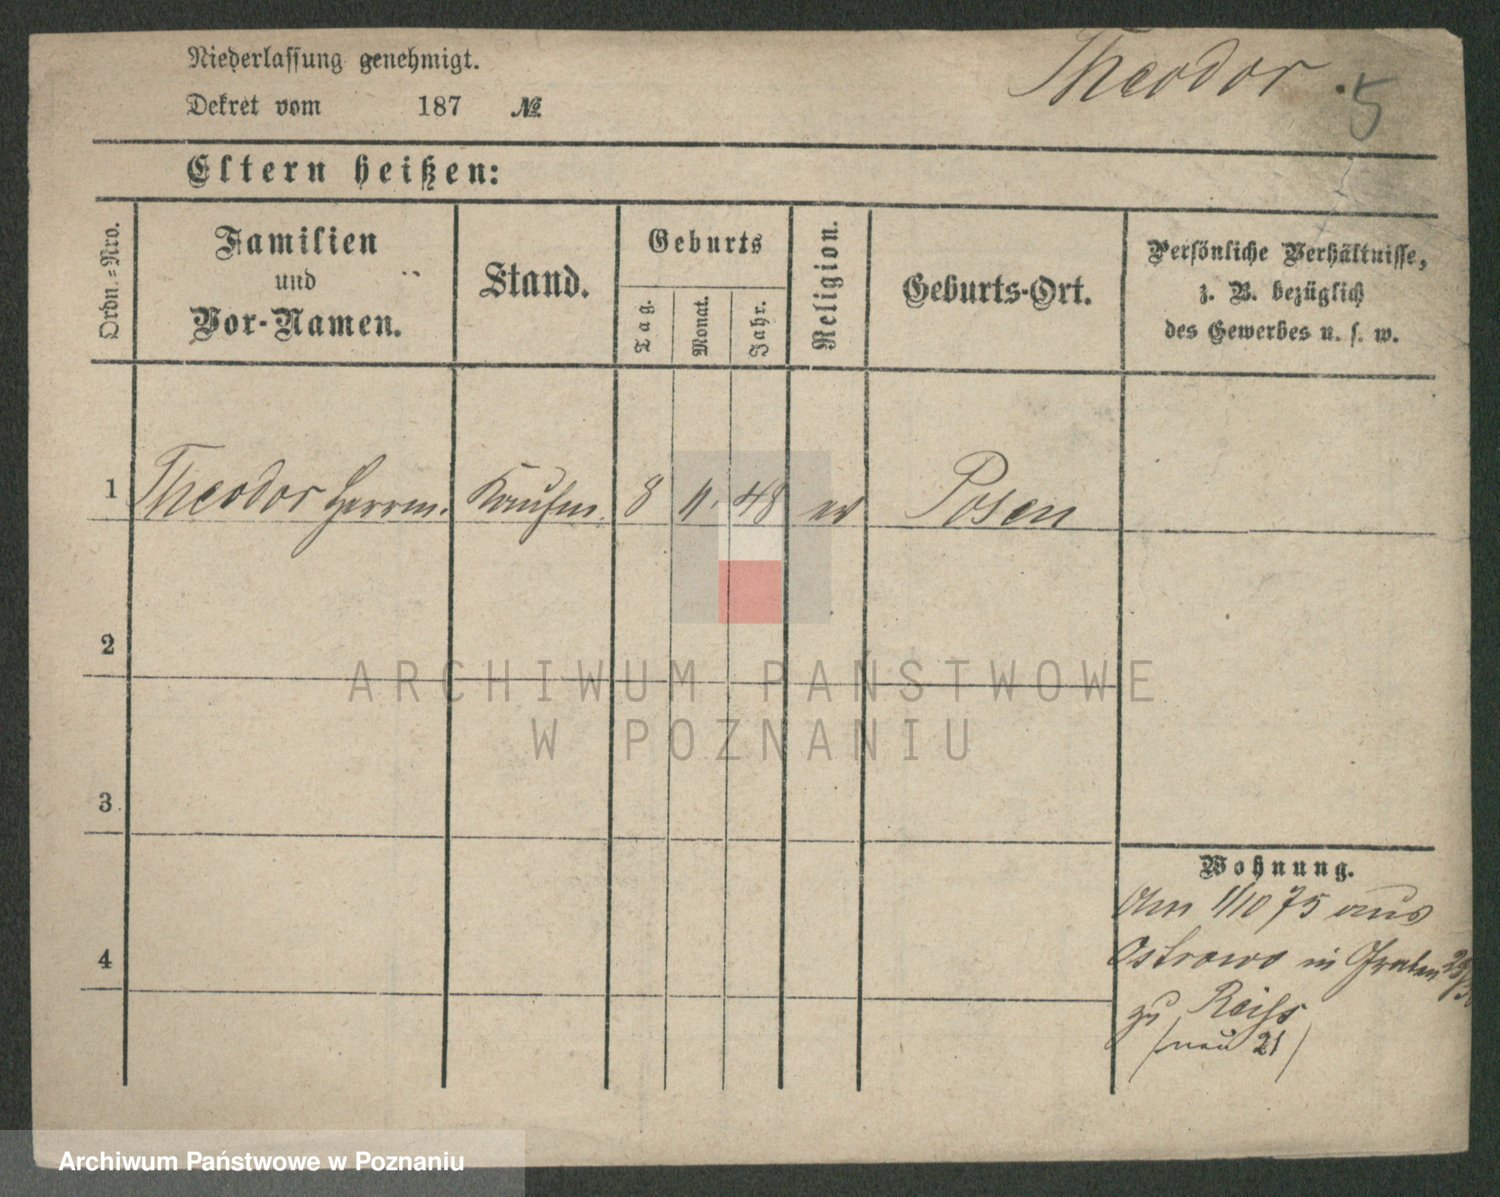 Niederlassung genehmigt.
Theodor.
5
Dekret vom 187 №
Eltern heißen:
Ordn.=Nro.
Familien
und
Vor-Namen.
Stand.
Geburts
Tag.
Monat.
Jahr.
Religion.
Geburts-Ort.
Persönliche Verhältnisse,
z. B. bezüglich
des Gewerbes u. s. w.
1 Theodor Herrm. Kaufm. 8 11. 48 ev Posen
2
3
4
Wohnung.
1/10 75 aus
Ostrowo in Graben
zu Reiss
(neu 21)
ARCHIWUM PAŃSTWOWE
W POZNANIU
Archiwum Państwowe w Poznaniu